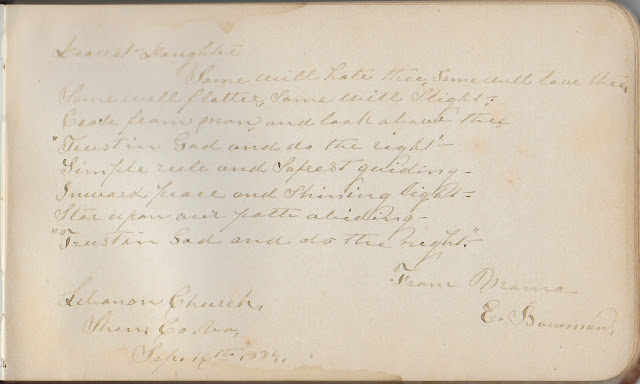 Dearest Daughter
Some will hate thee, Some will love thee
Some will flatter, Some will Slight-
Cease from man, and look above thee
"Trust in God and do the right"-
Simple rule and Safest guiding-
Inward peace and Shining light-
Star upon our path abiding-
"Trust in God and do the right."
From Mama
E. Bowman,
Lebanon Church,
Shen, Co. Va,
Sep. 16th 1884.